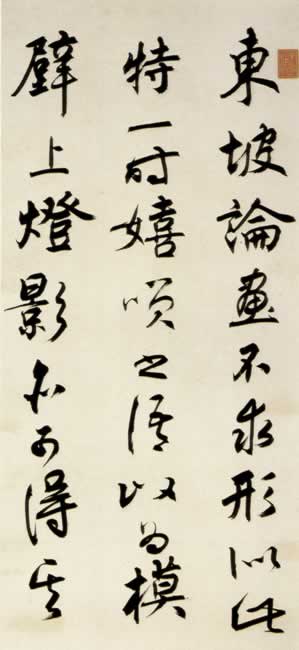 東坡論畫不求形似此
特一時嬉咲之語以為模
壁上燈影亦可得其